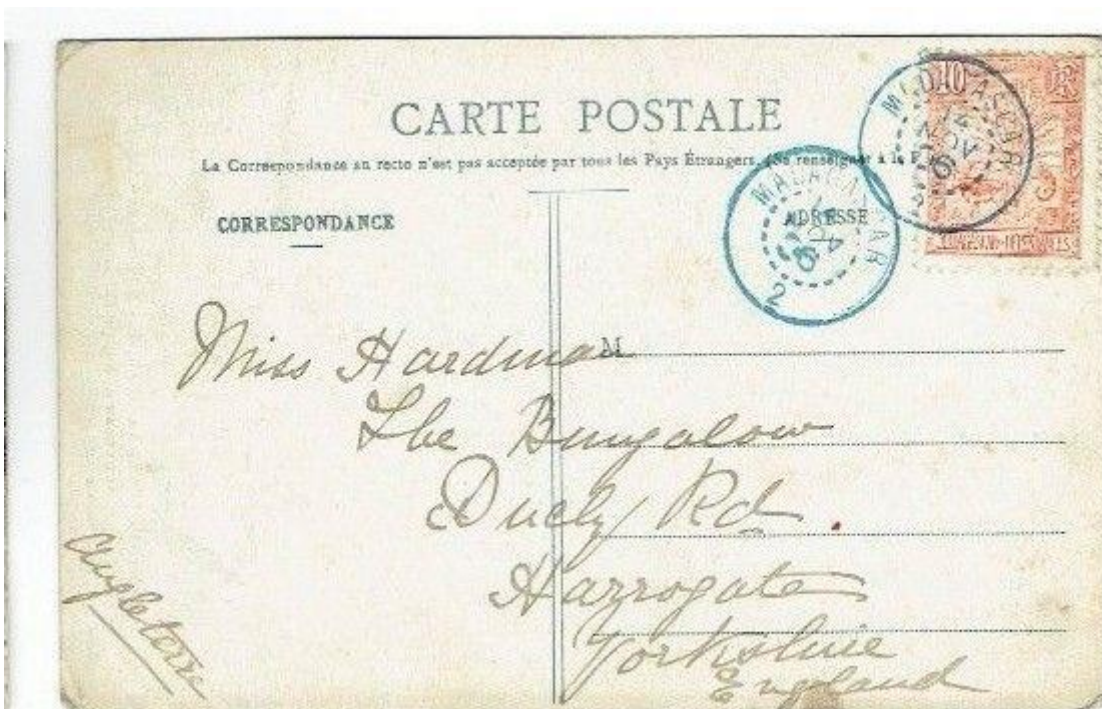 CARTE POSTALE
La Correspondance au recto n'est pas acceptée par tous les Pays Étrangers. (Se renseigner à la
CORRESPONDANCE
ADRESSE
MADAGASCAR
2
MADAGASCAR
10
RF
M
Miss Hardman
The Bungalow
Duchy Rd.
Harrogate
Yorkshire
England
Angleterre